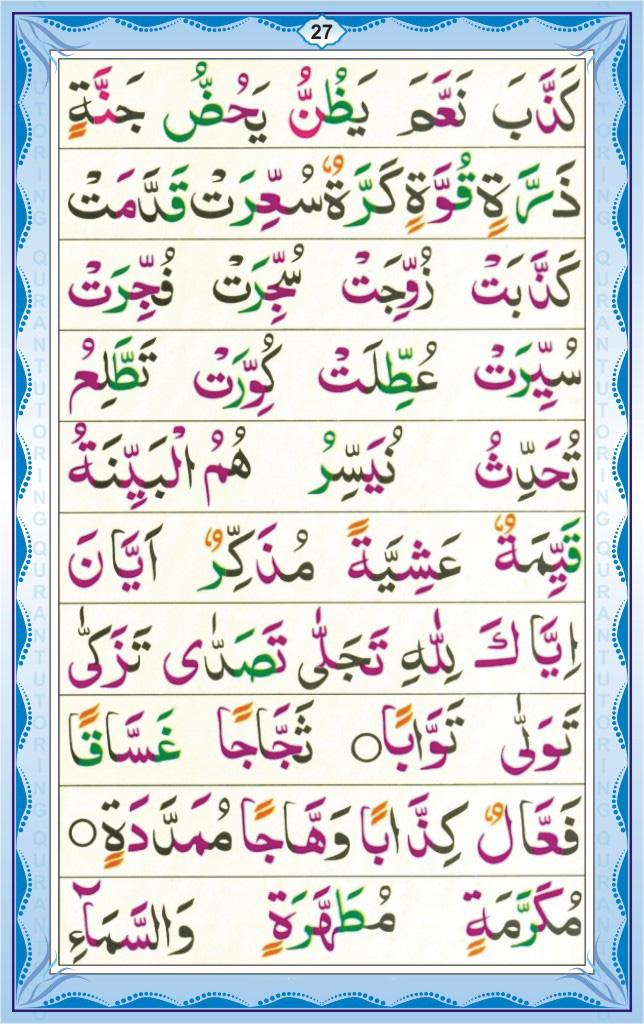 27
كَذَّبَ نَعَّمَ يَظُنُّ يَحُضُّ جَنَّةٍ
ذَرَّةٍ قُوَّةٍ كَرَّةٌ سُعِّرَتْ قَدَّمَتْ
كَذَّبَتْ زُوِّجَتْ سُجِّرَتْ فُجِّرَتْ
سُيِّرَتْ عُطِّلَتْ كُوِّرَتْ تَطَّلِعُ
تُحَدِّثُ نُيَسِّرُ هُمُ الْبَيِّنَةُ
قَيِّمَةٌ عَشِيَّةً مُذَكِّرٌ اَيَّانَ
اِيَّاكَ لِلّٰهِ تَجَلّٰى تَصَدّٰى تَزَكّٰى
تَوَلّٰى تَوَّابًا○ ثَجَّاجًا غَسَّاقًا
فَعَّالٌ كِذَّابًا وَهَّاجًا مُمَدَّدَةٍ○
مُكَرَّمَةٍ مُطَهَّرَةٍ وَالسَّمَآءِ
QURANTUTORING QURANTUTORING
QURANTUTORING QURANTUTORING